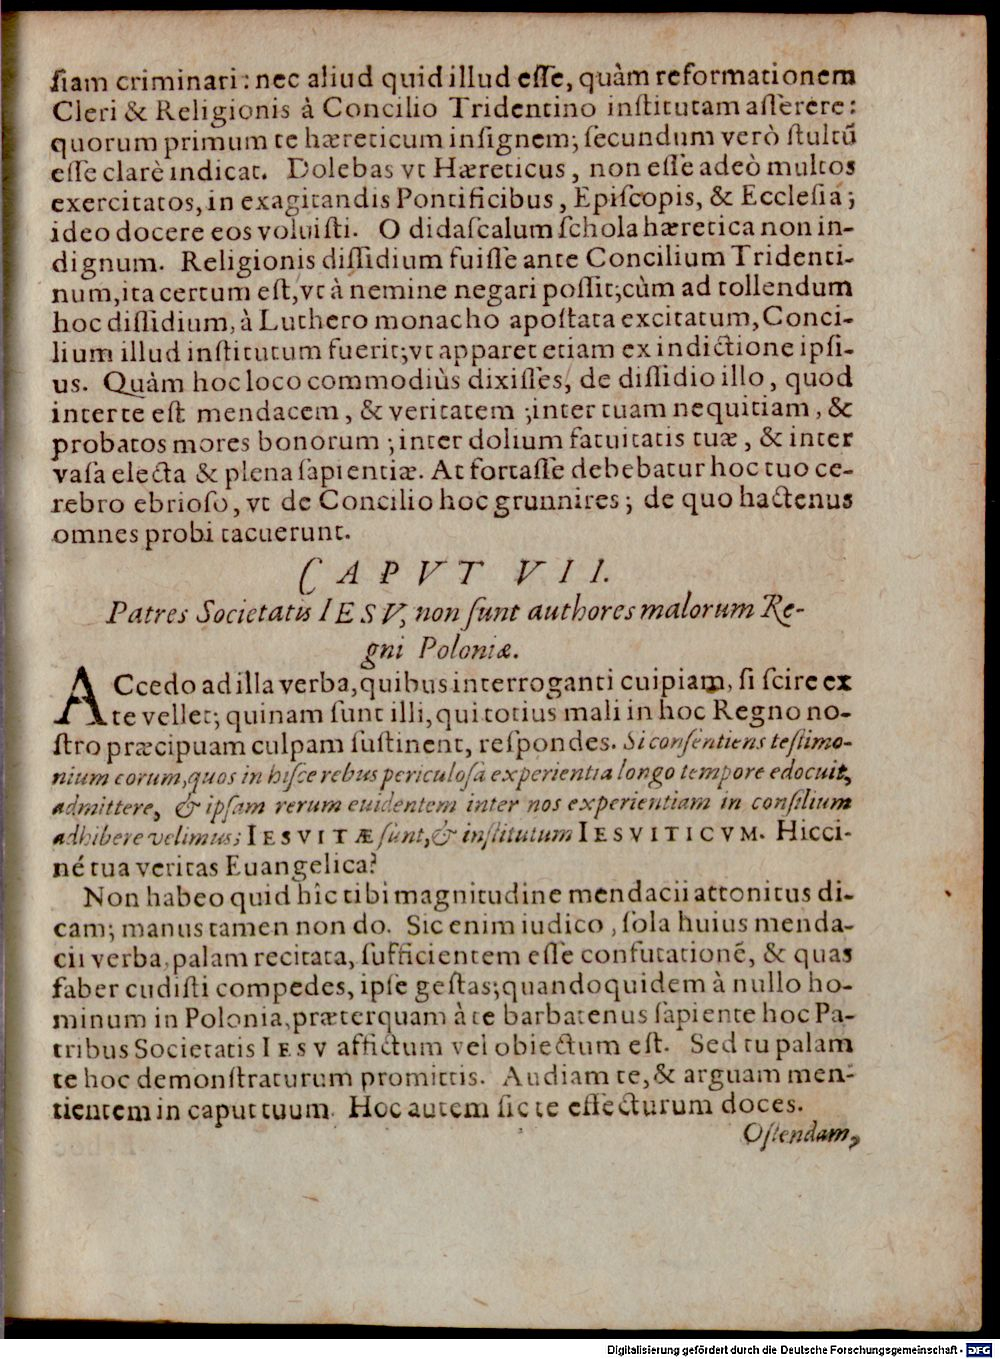 ſiam criminari: nec aliud quid illud eſſe, quàm reformationem
Cleri & Religionis à Concilio Tridentino inſtitutam aſſerere:
quorum primum te hæreticum inſignem; ſecundum verò ſtultũ
eſſe clarè indicat. Dolebas vt Hæreticus, non eſſe adeò multos
exercitatos, in exagitandis Pontificibus, Epiſcopis, & Eccleſia;
ideo docere eos voluiſti. O didaſcalum ſchola hæretica non in-
dignum. Religionis diſſidium fuiſſe ante Concilium Tridenti-
num, ita certum eſt, vt à nemine negari poſſit; cùm ad tollendum
hoc diſſidium, à Luthero monacho apoſtata excitatum, Conci-
lium illud inſtitutum fuerit; vt apparet etiam ex indictione ipſi-
us. Quàm hoc loco commodiùs dixiſſes, de diſſidio illo, quod
inter te eſt mendacem, & veritatem; inter tuam nequitiam, &
probatos mores bonorum; inter dolium fatuitatis tuæ, & inter
vaſa electa & plena ſapientiæ. At fortaſſe debebatur hoc tuo ce-
rebro ebrioſo, vt de Concilio hoc grunnires; de quo hactenus
omnes probi tacuerunt.
CAPVT VII.
Patres Societatis IESV, non ſunt authores malorum Re-
gni Poloniæ.
ACcedo ad illa verba, quibus interroganti cuipiam, ſi ſcire ex
te vellet; quinam ſunt illi, qui totius mali in hoc Regno no-
ſtro præcipuam culpam ſuſtinent, reſpondes. Si conſentiens teſtimo-
nium eorum, quos in hiſce rebus periculoſa experientia longo tempore edocuit,
admittere, & ipſam rerum euidentem inter nos experientiam in conſilium
adhibere velimus; IESVITÆ ſunt, & inſtitutum IESVITICVM. Hicci-
né tua veritas Euangelica?
Non habeo quid hîc tibi magnitudine mendacii attonitus di-
cam; manus tamen non do. Sic enim iudico, ſola huius menda-
cii verba palam recitata, ſufficientem eſſe confutationẽ, & quas
faber cudiſti compedes, ipſe geſtas; quandoquidem à nullo ho-
minum in Polonia, præterquam à te barbatenus ſapiente hoc Pa-
tribus Societatis IESV affictum vel obiectum eſt. Sed tu palam
te hoc demonſtraturum promittis. Audiam te, & arguam men-
tientem in caput tuum. Hoc autem ſic te effecturum doces.
Oſtendam,
Digitalisierung gefördert durch die Deutsche Forschungsgemeinschaft - DFG